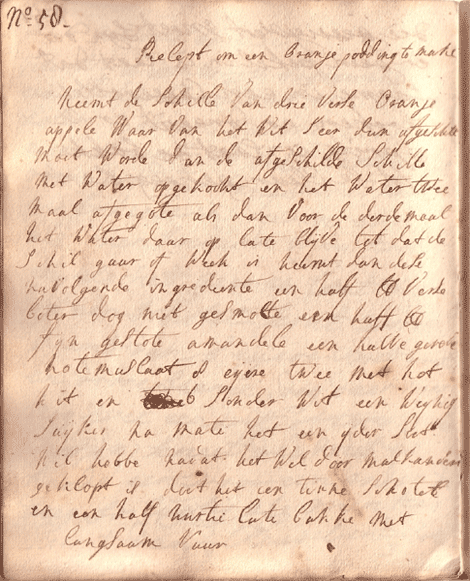 No 58.
Recept om een Oranje podding te make
Neemt de Schille Van drie Verse Oranje
appele Waar Van het Wit Seer dun afgeschilt
moet Worde dan de afgeschilde Schille
met Water opgekookt en het Water twee
maal afgegote als dan Voor de derde maal
het Water daar op late blijve tot dat de
Schil gaar of Week is neemt dan dese
navolgende ingrediente een half ℔ Verse
boter dog niet gesmolte een half ℔
fyn gestote amandele een halve geraspte
notemuscaat 8 eijere twee met het
Wit en Sonder Wit een Weynig
Suijker na mate het een yder Soet
Wil hebbe nadat het Wel door malkandere
geklopt is doet het in een tinne Schotel
en een half uurtie late bakke met
langsaam Vuur